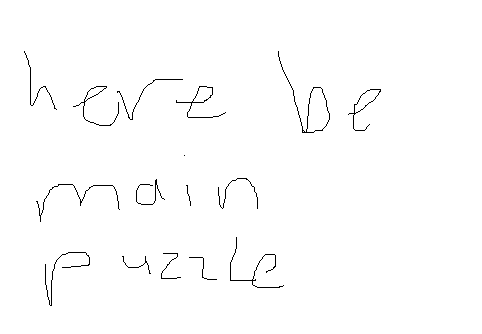 here be
main
puzzle